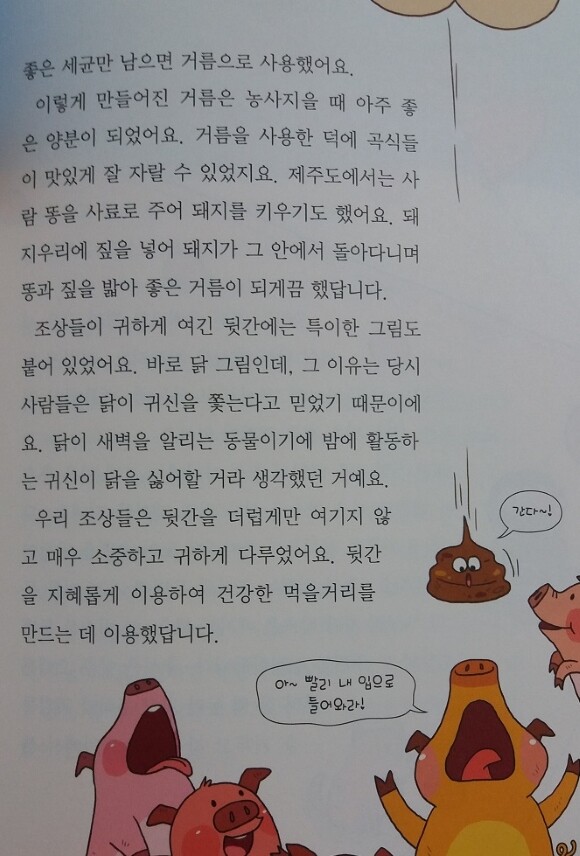 좋은 세균만 남으면 거름으로 사용했어요.
이렇게 만들어진 거름은 농사지을 때 아주 좋
은 양분이 되었어요. 거름을 사용한 덕에 곡식들
이 맛있게 잘 자랄 수 있었지요. 제주도에서는 사
람 똥을 사료로 주어 돼지를 키우기도 했어요. 돼
지우리에 짚을 넣어 돼지가 그 안에서 돌아다니며
똥과 짚을 밟아 좋은 거름이 되게끔 했답니다.
조상들이 귀하게 여긴 뒷간에는 특이한 그림도
붙어 있었어요. 바로 닭 그림인데, 그 이유는 당시
사람들은 닭이 귀신을 쫓는다고 믿었기 때문이에
요. 닭이 새벽을 알리는 동물이기에 밤에 활동하
는 귀신이 닭을 싫어할 거라 생각했던 거예요.
우리 조상들은 뒷간을 더럽게만 여기지 않
고 매우 소중하고 귀하게 다루었어요. 뒷간
을 지혜롭게 이용하여 건강한 먹을거리를
만드는 데 이용했답니다.
간다~!
아~ 빨리 내 입으로
들어와라!